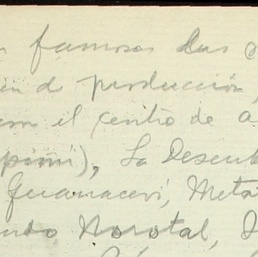 famosos las
de producción,
el centro de a
pimí), La Descub
Guanaceví, Meta
ndo Norotal, I